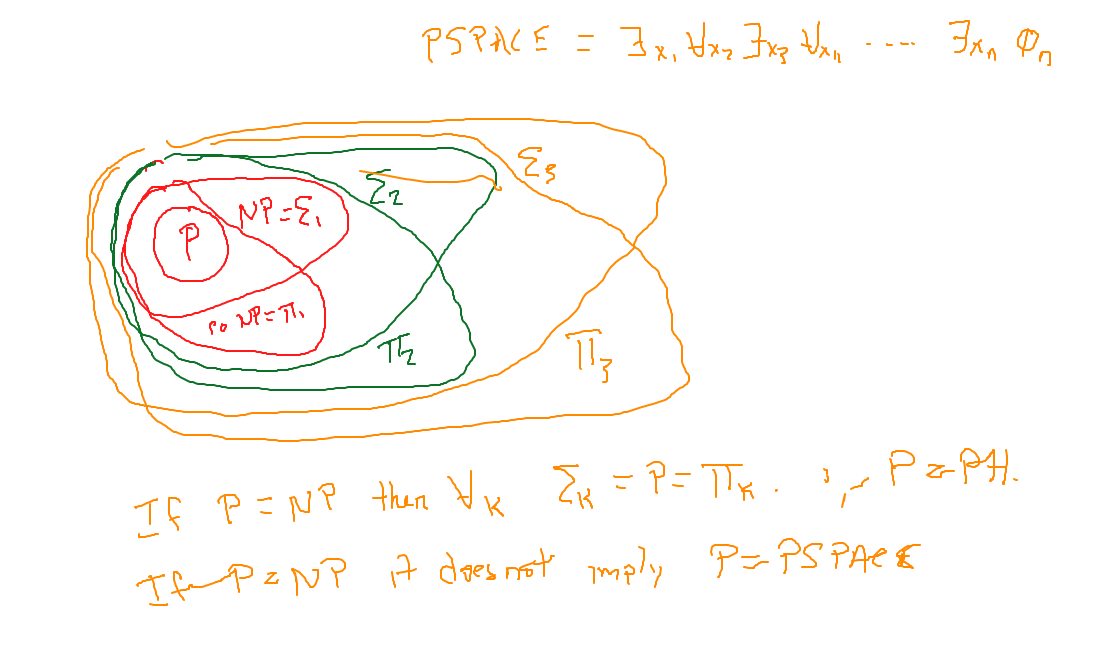 PSPACE = ∃x₁ ∀x₂ ∃x₃ ∀x₄ ..... ∃xₙ φₙ
Σ₃
Σ₂
NP=Σ₁
P
co NP=Π₁
Π₂
Π₃
If P = NP then ∀k Σₖ = P = Πₖ. ∴ P = PH.
If P = NP it does not imply P = PSPACE